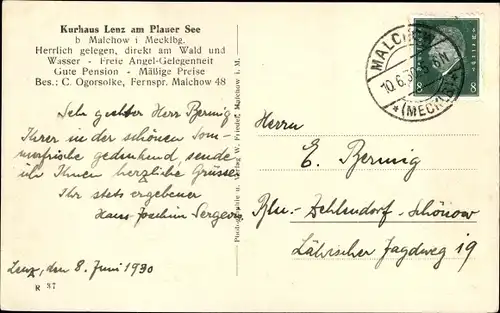 Kurhaus Lenz am Plauer See
b Malchow i Mecklbg.
Herrlich gelegen, direkt am Wald und
Wasser - Freie Angel-Gelegenheit
Gute Pension - Mäßige Preise
Bes.: C. Ogorsolke, Fernspr. Malchow 48
Sehr geehrter Herr Bernig
Ihrer in der schönen Som-
merfrische gedenkend, sende
ich Ihnen herzliche Grüsse
Ihr stets ergebener
Hans Joachim
Lenz, den 8. Juni 1930
R 37
Photographie u. Verlag W. Malchow i. M.
MALCHOW
10.6.30
(MECKLB)
8 8
Herrn
E. Bernig
Bln.-Zehlendorf-Schönow
Jagdweg 19